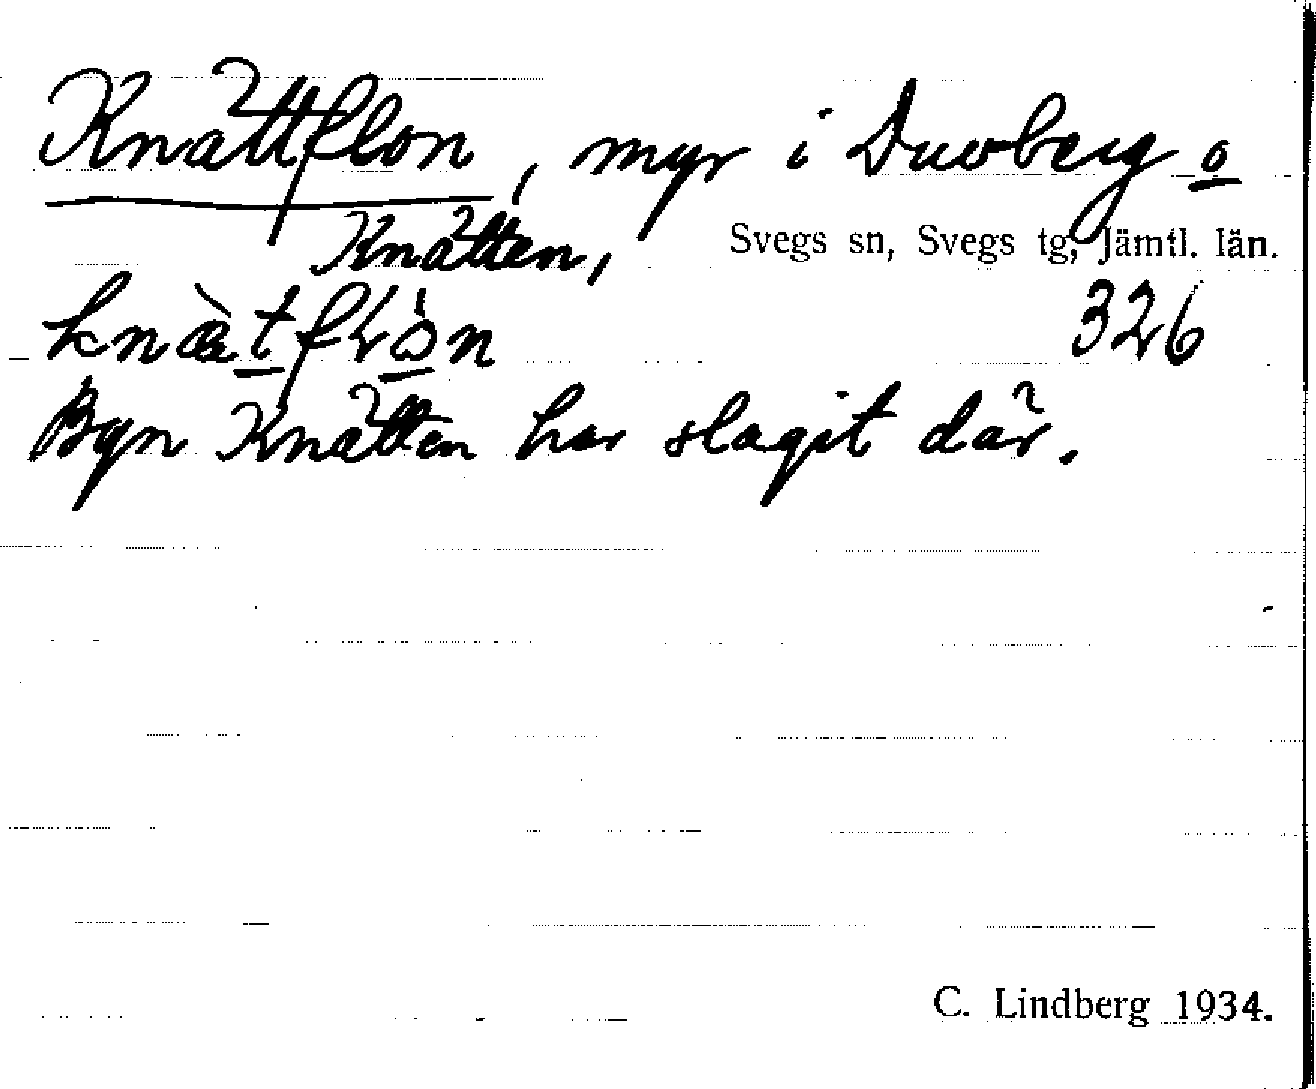 Knättflon, myr i Duvberg o
Knätten, Svegs sn, Svegs tg, Jämtl. län.
326
Byn Knätten har slagit där.
C. Lindberg 1934.